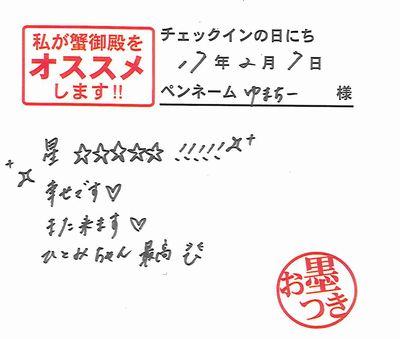 私が蟹御殿を
オススメ
します!!
チェックインの日にち
17年2月7日
ペンネーム ゆまちー 様
星 ☆☆☆☆☆ !!!!!
幸せです♡
また来ます♡
ひとみちゃん 最高
お墨つき